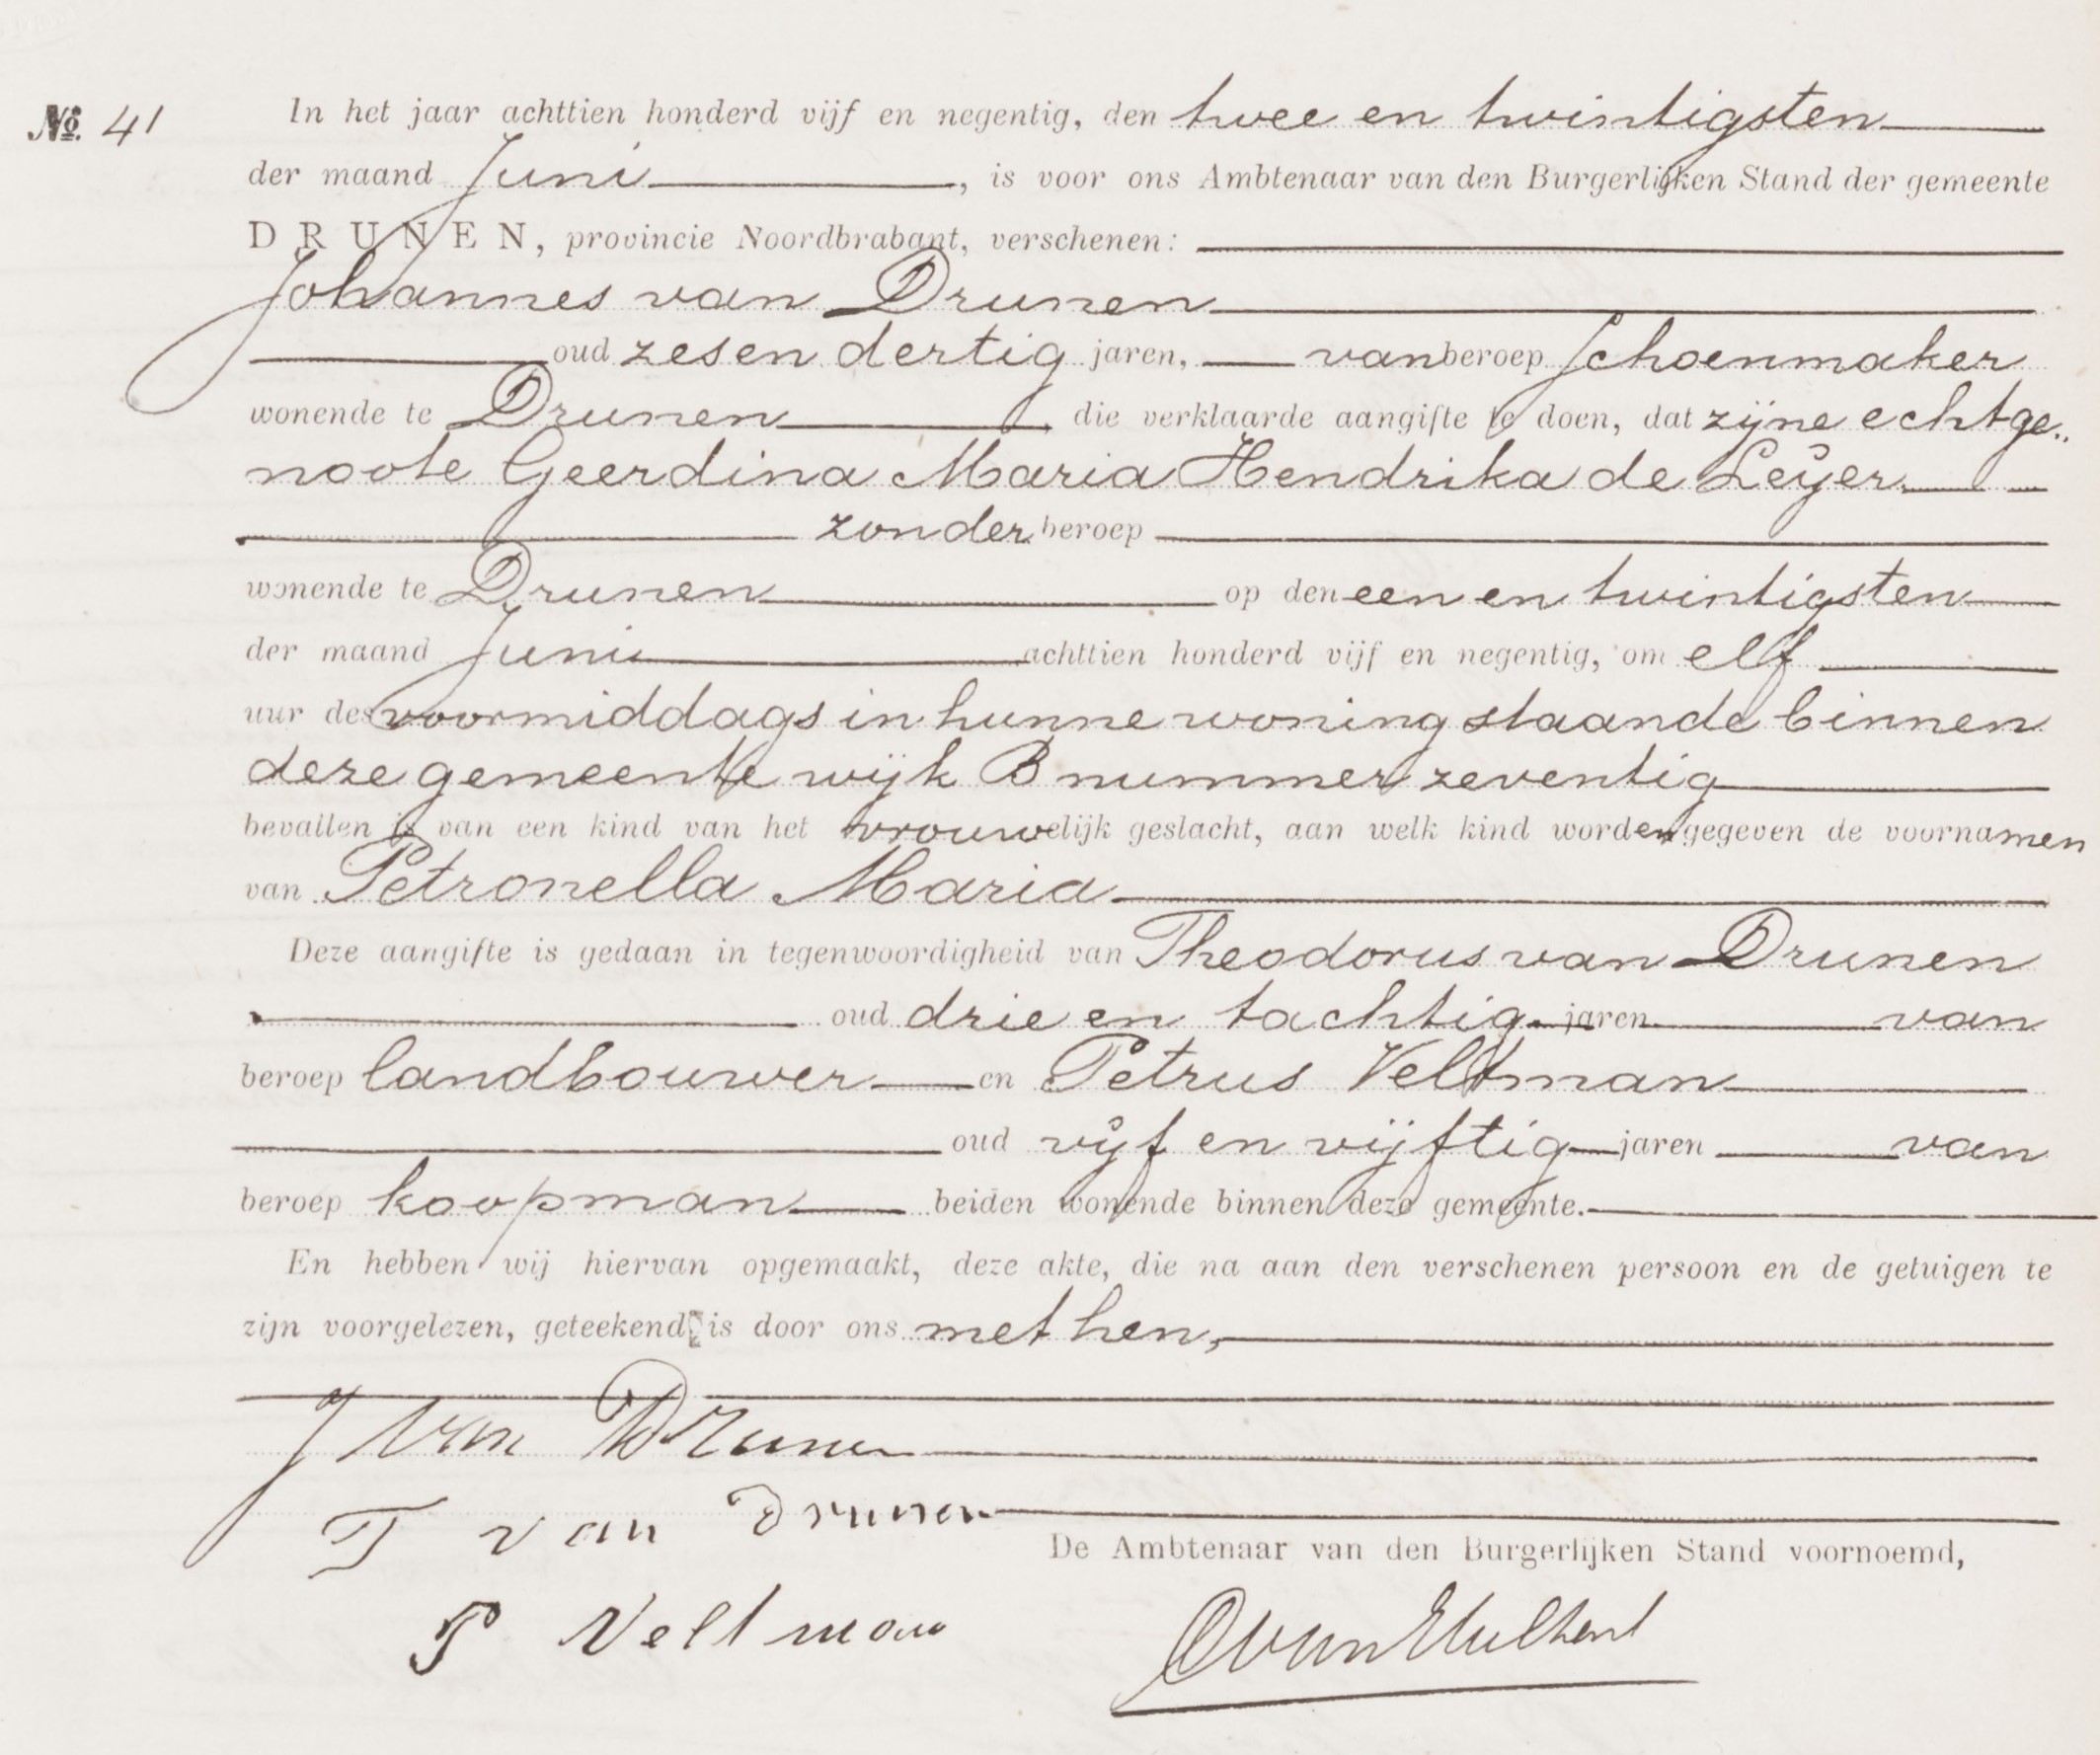 No. 41 In het jaar achttien honderd vijf en negentig, den twee en twintigsten
der maand Juni, is voor ons Ambtenaar van den Burgerlijken Stand der gemeente
DRUNEN, provincie Noordbrabant, verschenen:
Johannes van Drunen
oud zes en dertig jaren, van beroep Schoenmaker
wonende te Drunen, die verklaarde aangifte te doen, dat zijne echtge„
noote Geerdina Maria Hendrika de Leijer
zonder beroep
wonende te Drunen op den een en twintigsten
der maand Juni achttien honderd vijf en negentig, om elf
uur des voormiddags in hunne woning staande binnen
deze gemeente wijk B nummer zeventig
bevallen is van een kind van het vrouwelijk geslacht, aan welk kind worden gegeven de voornamen
van Petronella Maria
Deze aangifte is gedaan in tegenwoordigheid van Theodorus van Drunen
oud drie en tachtig jaren van
beroep landbouwer en Petrus Veltman
oud vijf en vijftig jaren van
beroep koopman beiden wonende binnen deze gemeente.
En hebben wij hiervan opgemaakt, deze akte, die na aan den verschenen persoon en de getuigen te
zijn voorgelezen, geteekend is door ons met hen,
J van Drunen
T van Drunen
De Ambtenaar van den Burgerlijken Stand voornoemd,
P Veltman